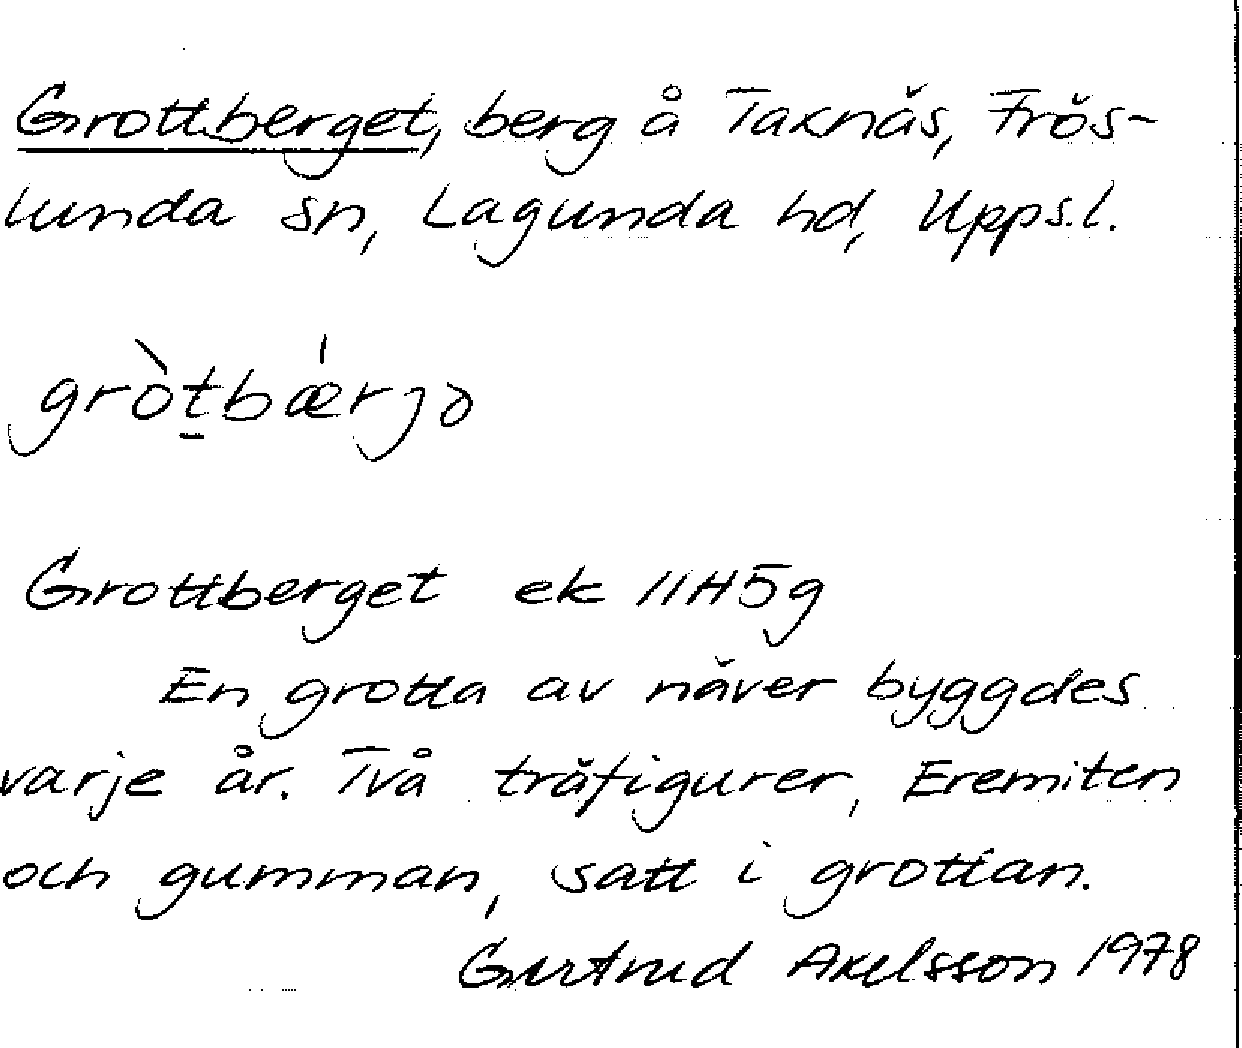 Grottberget, berg å Taxnäs, Frös-
lunda sn, Lagunda hd, Uppsl.
gròt̲bǽrjə
Grottberget ek 11H5g
En grotta av näver byggdes
varje år. Två träfigurer, Eremiten
och gumman, satt i grottan.
Gertrud Axelsson 1978